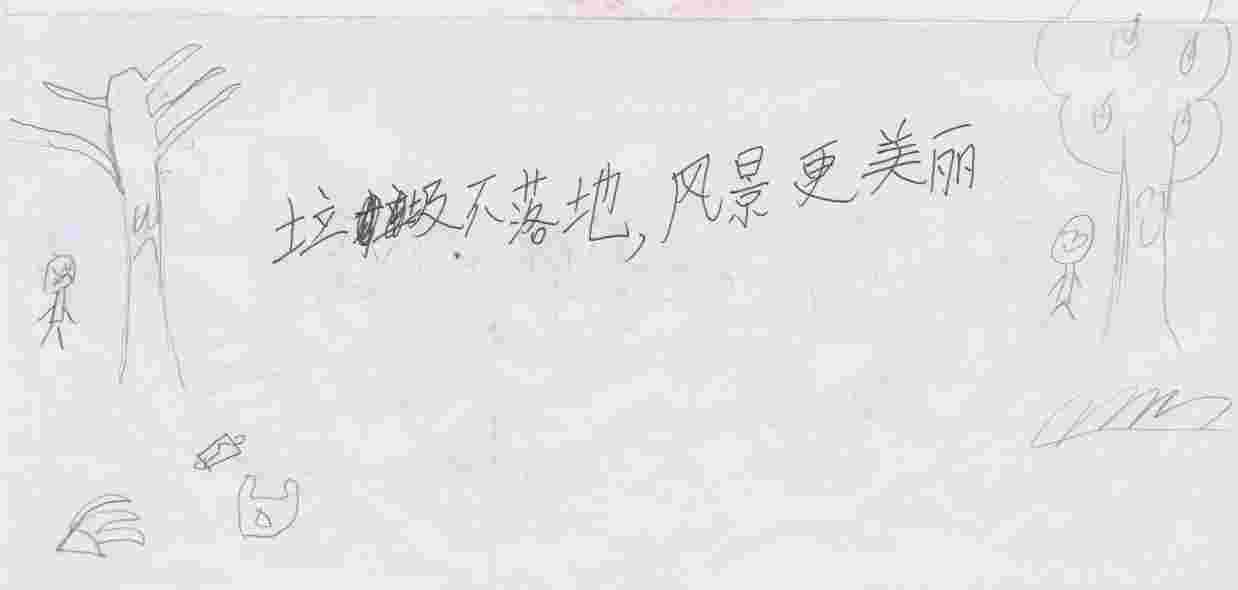 垃圾不落地,风景更美丽